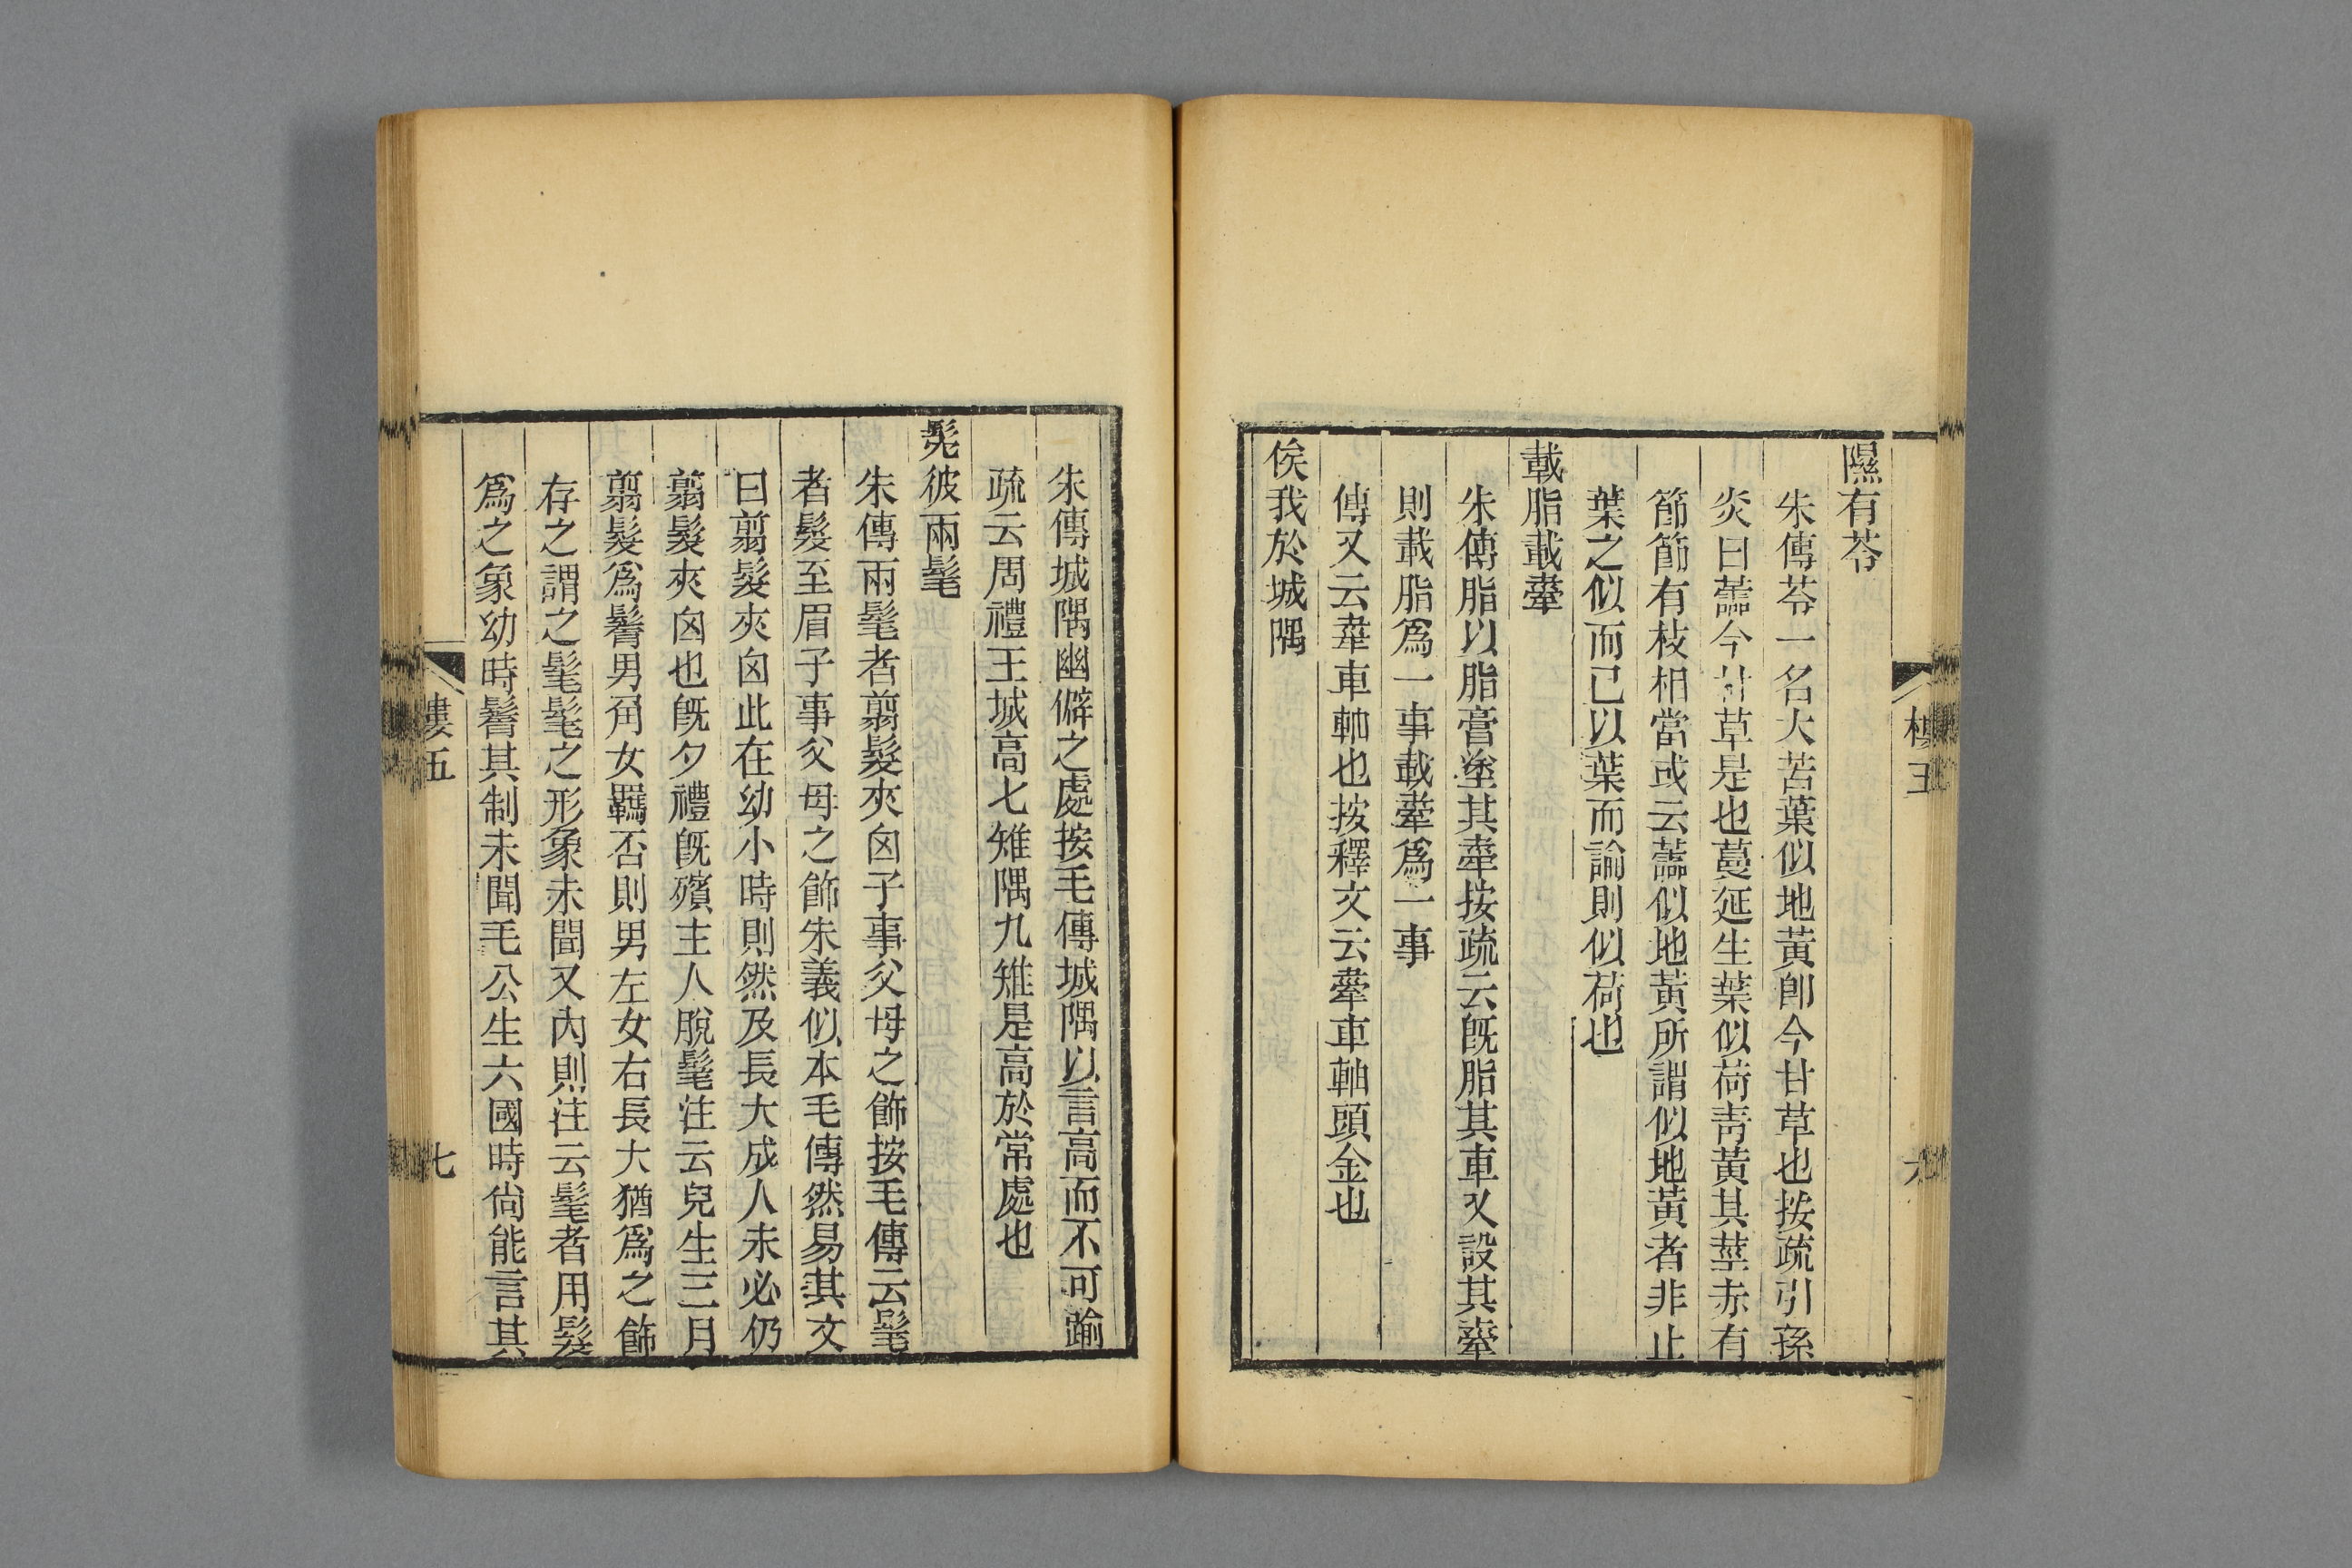 隰有苓
朱傳苓一名大苦葉似地黃卽今甘草也按疏引孫
炎曰蘦今甘草是也蔓延生葉似荷靑黃其莖赤有
節節有枝相當或云蘦似地黃所謂似地黃者非止
葉之似而已以葉而論則似荷也
載脂載舝
朱傳脂以脂膏塗其舝按疏云旣脂其車又設其舝
則載脂爲一事載舝爲一事
傳又云舝車軸也按釋文云舝車軸頭金也
俟我於城隅
朱傳城隅幽僻之處按毛傳城隅以言高而不可踰
疏云周禮王城高七雉隅九雉是高於常處也
髧彼兩髦
朱傳兩髦者翦髮夾囟子事父母之飾按毛傳云髦
者髮至眉子事父母之飾朱義似本毛傳然易其文
曰翦髮夾囟此在幼小時則然及長大成人未必仍
翦髮夾囟也旣夕禮旣殯主人脫髦注云兒生三月
翦髮爲鬌男角女羈否則男左女右長大猶爲之飾
存之謂之髦髦之形象未聞又內則注云髦者用髮
爲之象幼時鬌其制未聞毛公生六國時尙能言其
樓五
七